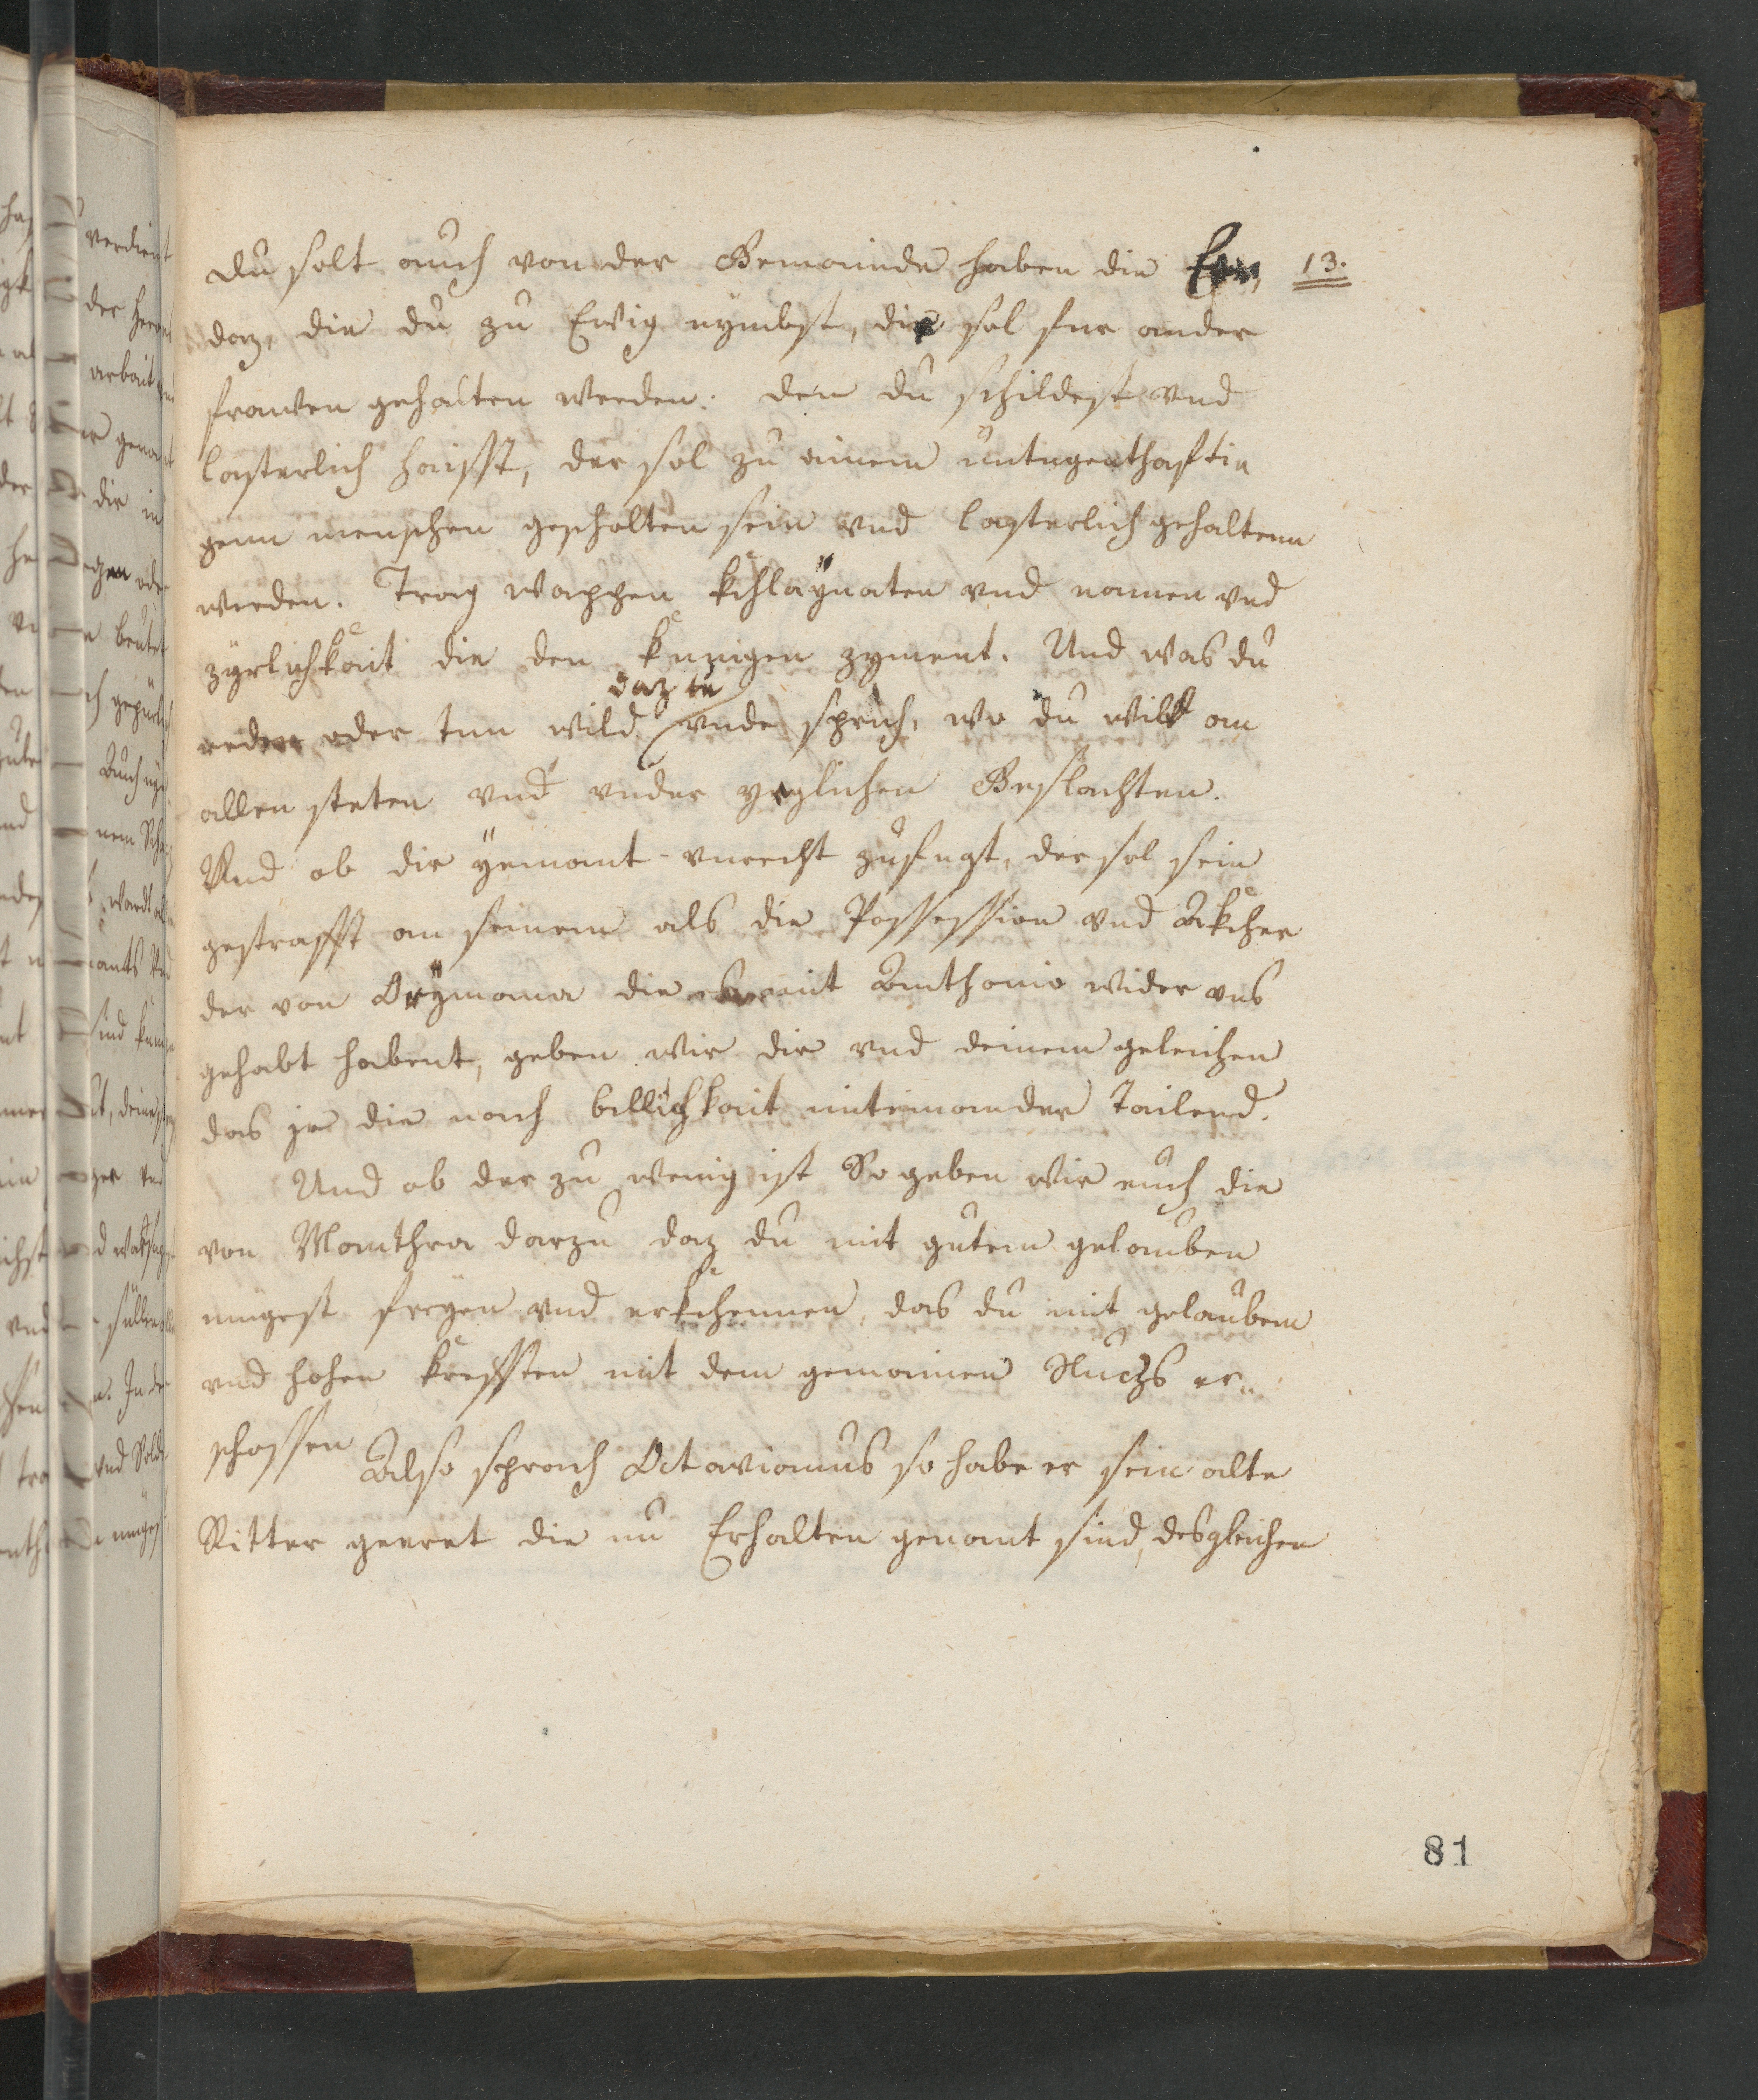 du solt auch von der Gemainde haben die Eer, 13.
daz, die du zu Ewig nymbst, die sol fur ander
frawen gehalten werden. den du schildest vnd
lasterlich haisst, der sol zu ainem untugenthaftin
genn menschen gescholten sein vnd lasterlich gehaltenn
werden. Trag wappen kchlaÿnaten vnd namen vnd
zyrlichkait die den kunigen zyment. Und was du
daz tu
reden oder tun wild vnde sprich, wo du wilt an
allen steten vnd vnder yeglichen Geslachten.
Und ob dir ÿemant vnrecht zufugt, der sol sein
gestrafft an seinem als die Possession vnd Akcher
der von Orÿmona die mit Anthonio wider vns
gehabt habent, geben wir dir vnd deinem geleichen
das jr die nach billichkait miteinander Tailend.
Und ob der zu wenig ist So geben wir euch die
von Manthea darzu daz du mit gutem gelauben
mügest freyen vnd erkchennen, das du mit gelauben
vnd hohen krefften mit dem gemainen Nuczs er„
schossen Also sprach Octavianus so habe er sein alte
Ritter geeret die nu Erhalten genant sind, desgleichen
81